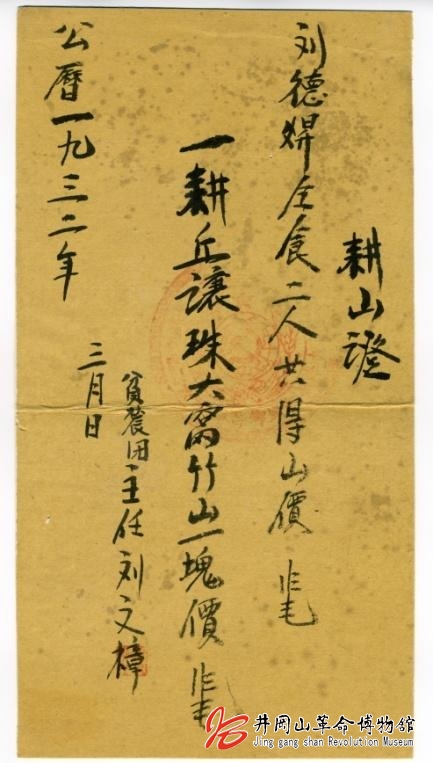 耕山證
刘德 全食二人共得山價
一耕丘讓珠大窩竹山一塊價
貧農团主任刘文樟
公曆一九三二年
三月日
井冈山革命博物馆
Jing gang shan Revolution Museum